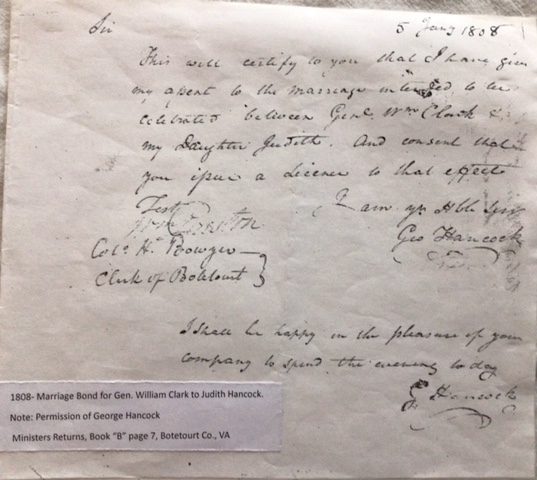 Sir
5 Jany 1808
This will certify to you that I have given
my assent to the marriage intended to be
celebrated between Genl. Wm Clark &
my Daughter Judith. And consent that
you issue a Licence to that effect
I am yr Hble Serv
Test
Wm Preston
Geo Hancock
Colo. H. Bowyer
Clerk of Botetourt
I shall be happy in the pleasure of your
company to spend the evening to day
G Hancock
1808- Marriage Bond for Gen. William Clark to Judith Hancock.
Note: Permission of George Hancock
Ministers Returns, Book "B" page 7, Botetourt Co., VA